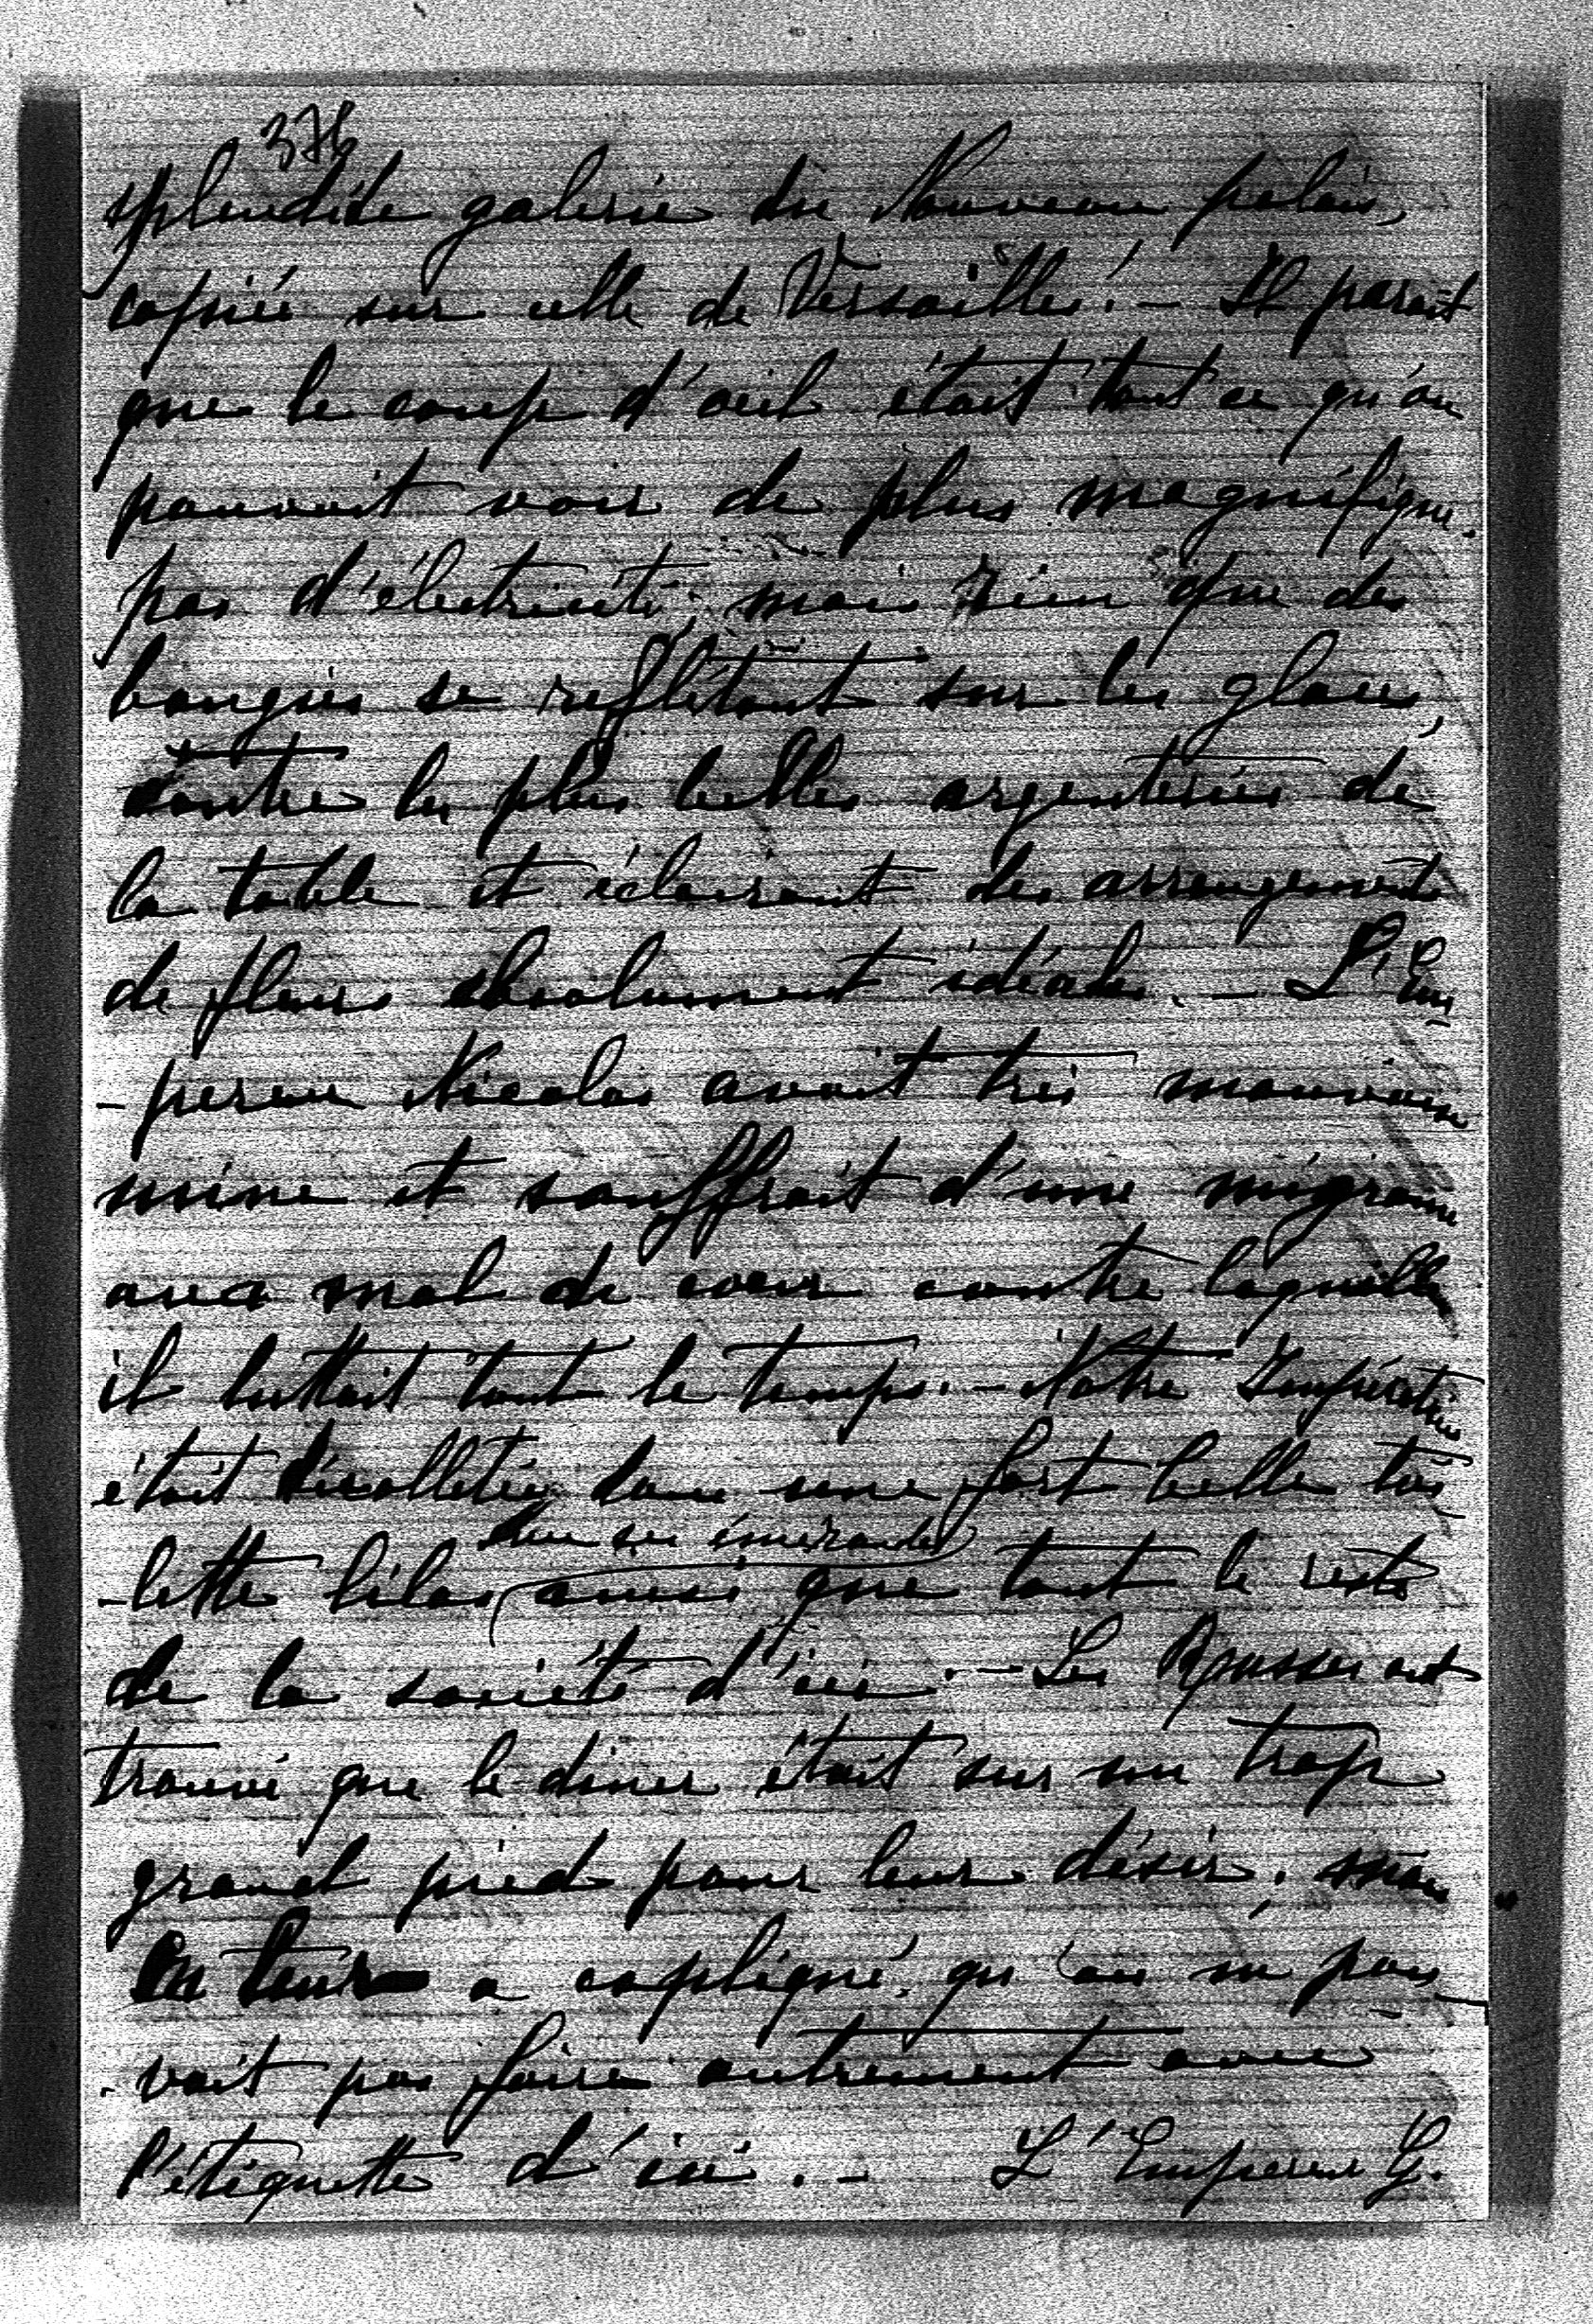 376
splendide galerie du Nouveau palais,
copiée sur celle de Versailles! - Il parait
que le coup d'œil était tout ce qu'on
pouvait voir de plus magnifique.
pas d'électricité; mais rien que des
bougies se reflétant sur les glaces,
contre les plus belles argenteries de
la table et éclairant des arrangements
de fleurs absolument idéales. - L'Em
- pereur Nicolas avait très mauvaise
mine et souffrait d'une migraine
avec mal de cœur contre laquelle
il luttait tout le temps. - Notre Impératrice
était décolletée dans une fort belle toi
avec ses émeraudes
- lette lilas ainsi que tout le reste
de la société d'ici. - Les Russes ont
trouvé que le diner était sur un trop
grand pied pour leur désir; mais
on leur a expliqué qu'on ne pou
- vait pas faire autrement avec
l'étiquette d'ici. - L'Empereur G.